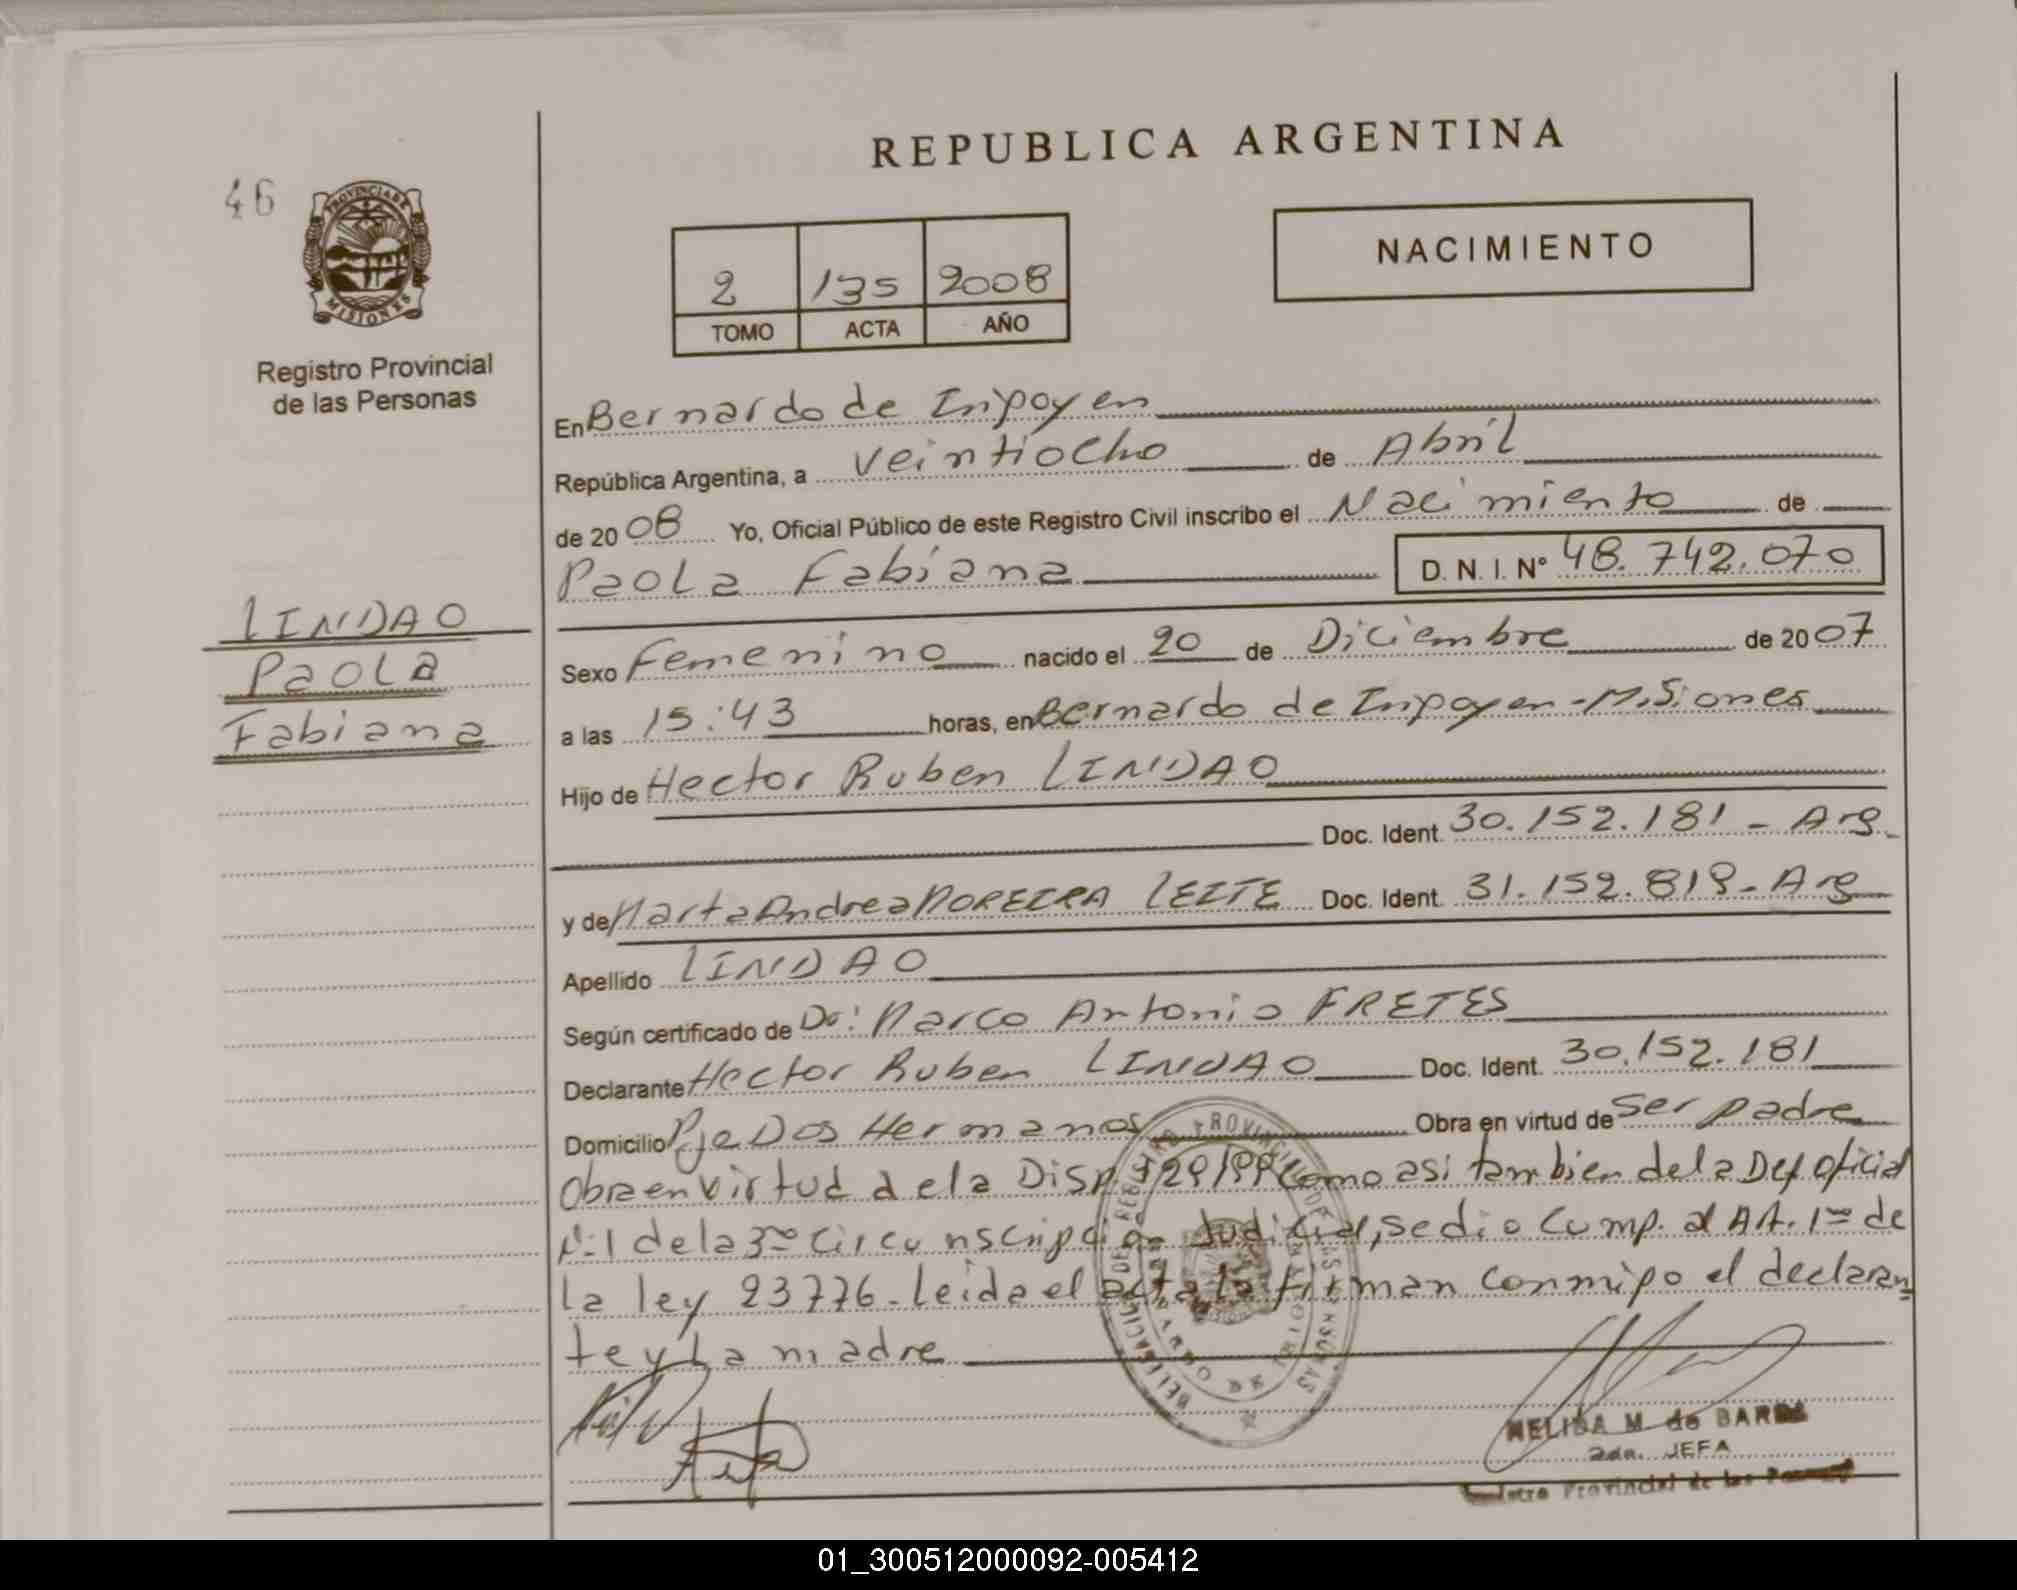 REPUBLICA ARGENTINA
46
PROVINCIA DE
MISIONES
Registro Provincial
de las Personas
2 135 2008
TOMO ACTA AÑO
NACIMIENTO
En Bernardo de Irigoyen
República Argentina, a veintiocho de Abril
de 2008 Yo, Oficial Público de este Registro Civil inscribo el Nacimiento de
Paola Fabiana D. N. I. N° 48.742.070
LINDAO
Paola
Fabiana
Sexo Femenino nacido el 20 de Diciembre de 2007
a las 15:43 horas, en Bernardo de Irigoyen - Misiones
Hijo de Hector Ruben LINDAO
Doc. Ident. 30.152.181 - Arg.
y de Marta Andrea MOREIRA LEITE Doc. Ident. 31.152.819 - Arg
Apellido LINDAO
Según certificado de Dr: Marco Antonio FRETES
Declarante Hector Ruben LINDAO Doc. Ident. 30.152.181
Domicilio Pje Dos Hermanos Obra en virtud de ser padre
Obra en virtud de la Disp. 129/99 como asi tambien de la Def oficial
N:1 de la 3ra circunscripción Judicial, se dio cump. al Art. 1ro de
la ley 23776 - Leida el acta la firman conmigo el declaran
te y la madre
NELIDA M. de
2da. JEFA
Provincial de las
01_300512000092-005412